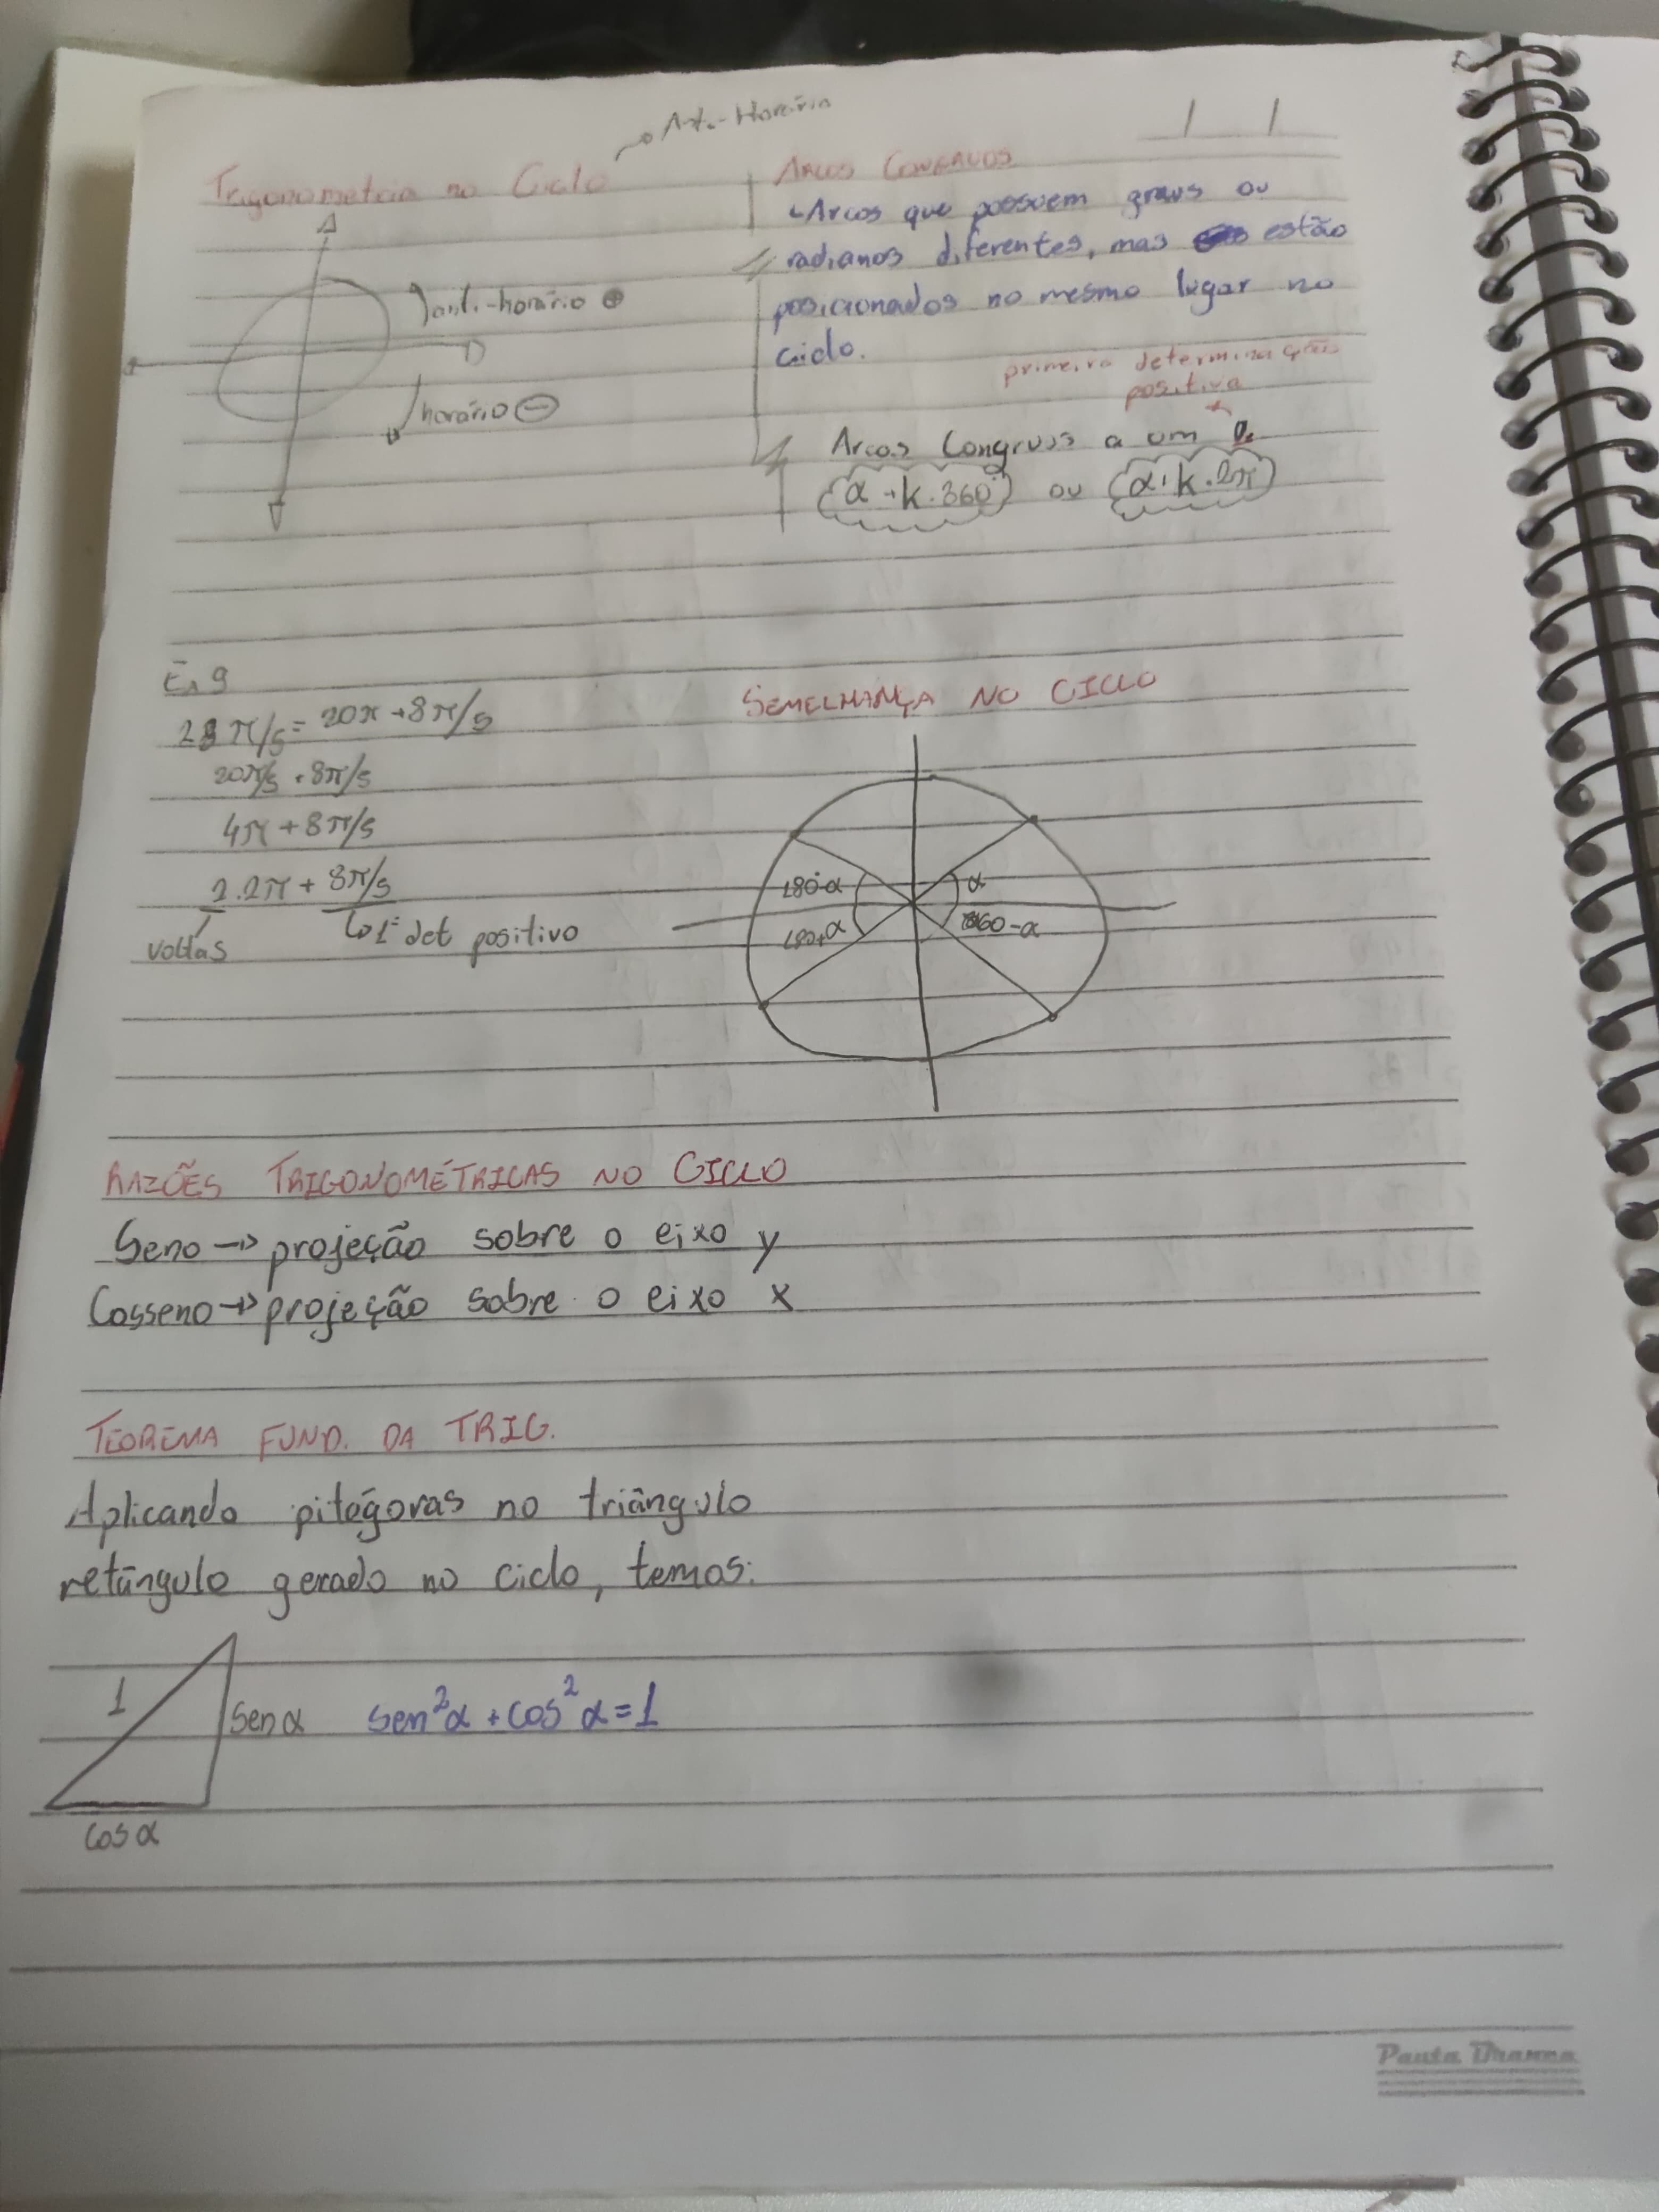 Anti-Horário
Trigonometria no Ciclo
anti-horário +
horário -
ARCOS CONGRUOS
Arcos que possuem graus ou
radianos diferentes, mas estão
posicionados no mesmo lugar no
ciclo.
primeira determinação
positiva
Arcos Congruos a um
α + k.360° ou α + k.2π
Ex 9
28π/5 = 20π + 8π/5
20π/5 + 8π/5
4π + 8π/5
2.2π + 8π/5
voltas
1ª det positivo
SEMELHANÇA NO CICLO
180°-α
α
180+α
360-α
RAZÕES TRIGONOMÉTRICAS NO CICLO
Seno → projeção sobre o eixo y
Cosseno → projeção sobre o eixo x
TEOREMA FUND. DA TRIG.
Aplicando pitágoras no triângulo
retângulo gerado no ciclo, temos:
1
Sen α
Sen²α + cos²α = 1
Cos α
Pauta Branca